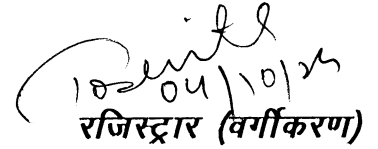 04/10/25
रजिस्ट्रार (वर्गीकरण)